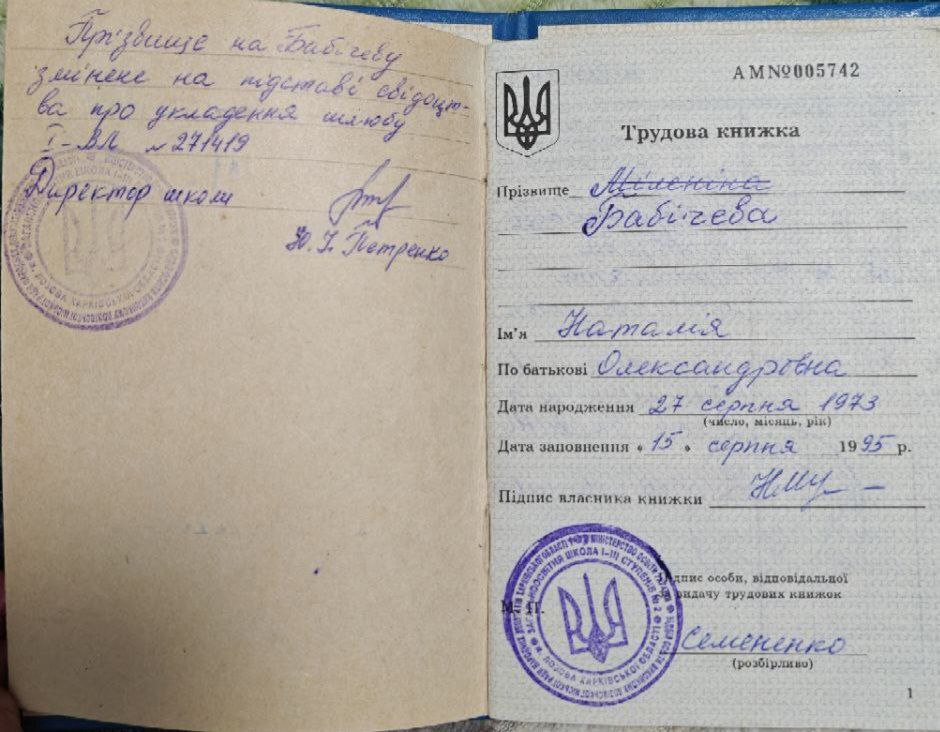 Прізвище на Бабічеву
змінене на підставі свідоцт-
ва про укладення шлюбу
I-ВЛ № 271419
Директор школи
Ю. І. Петренко
АМ№005742
Трудова книжка
Прізвище Міленіна
Бабічева
Ім'я Наталія
По батькові Олександрівна
Дата народження 27 серпня 1973
(число, місяць, рік)
Дата заповнення «15» серпня 1995 р.
Підпис власника книжки
Підпис особи, відповідальної
за видачу трудових книжок
М. П.
Семененко
(розбірливо)
ЗАГАЛЬНООСВІТНЯ ШКОЛА I-III СТУПЕНІВ № 2
м. ЛОЗОВА ХАРКІВСЬКОЇ ОБЛАСТІ
1